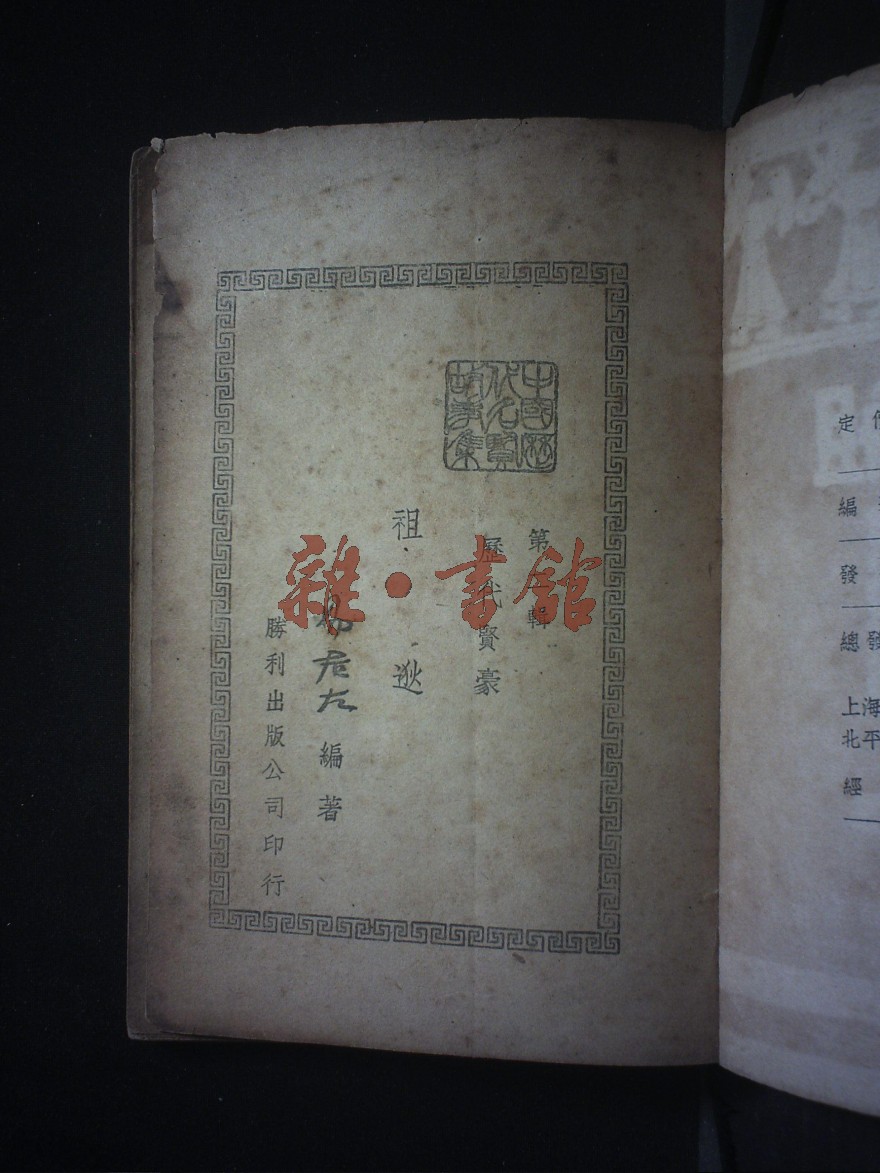 中國歷
代名賢
故事集
第一輯
歷代賢豪
祖逖
易君左編著
勝利出版公司印行
雜·書館
定
編
發
總發
上海
北平
經